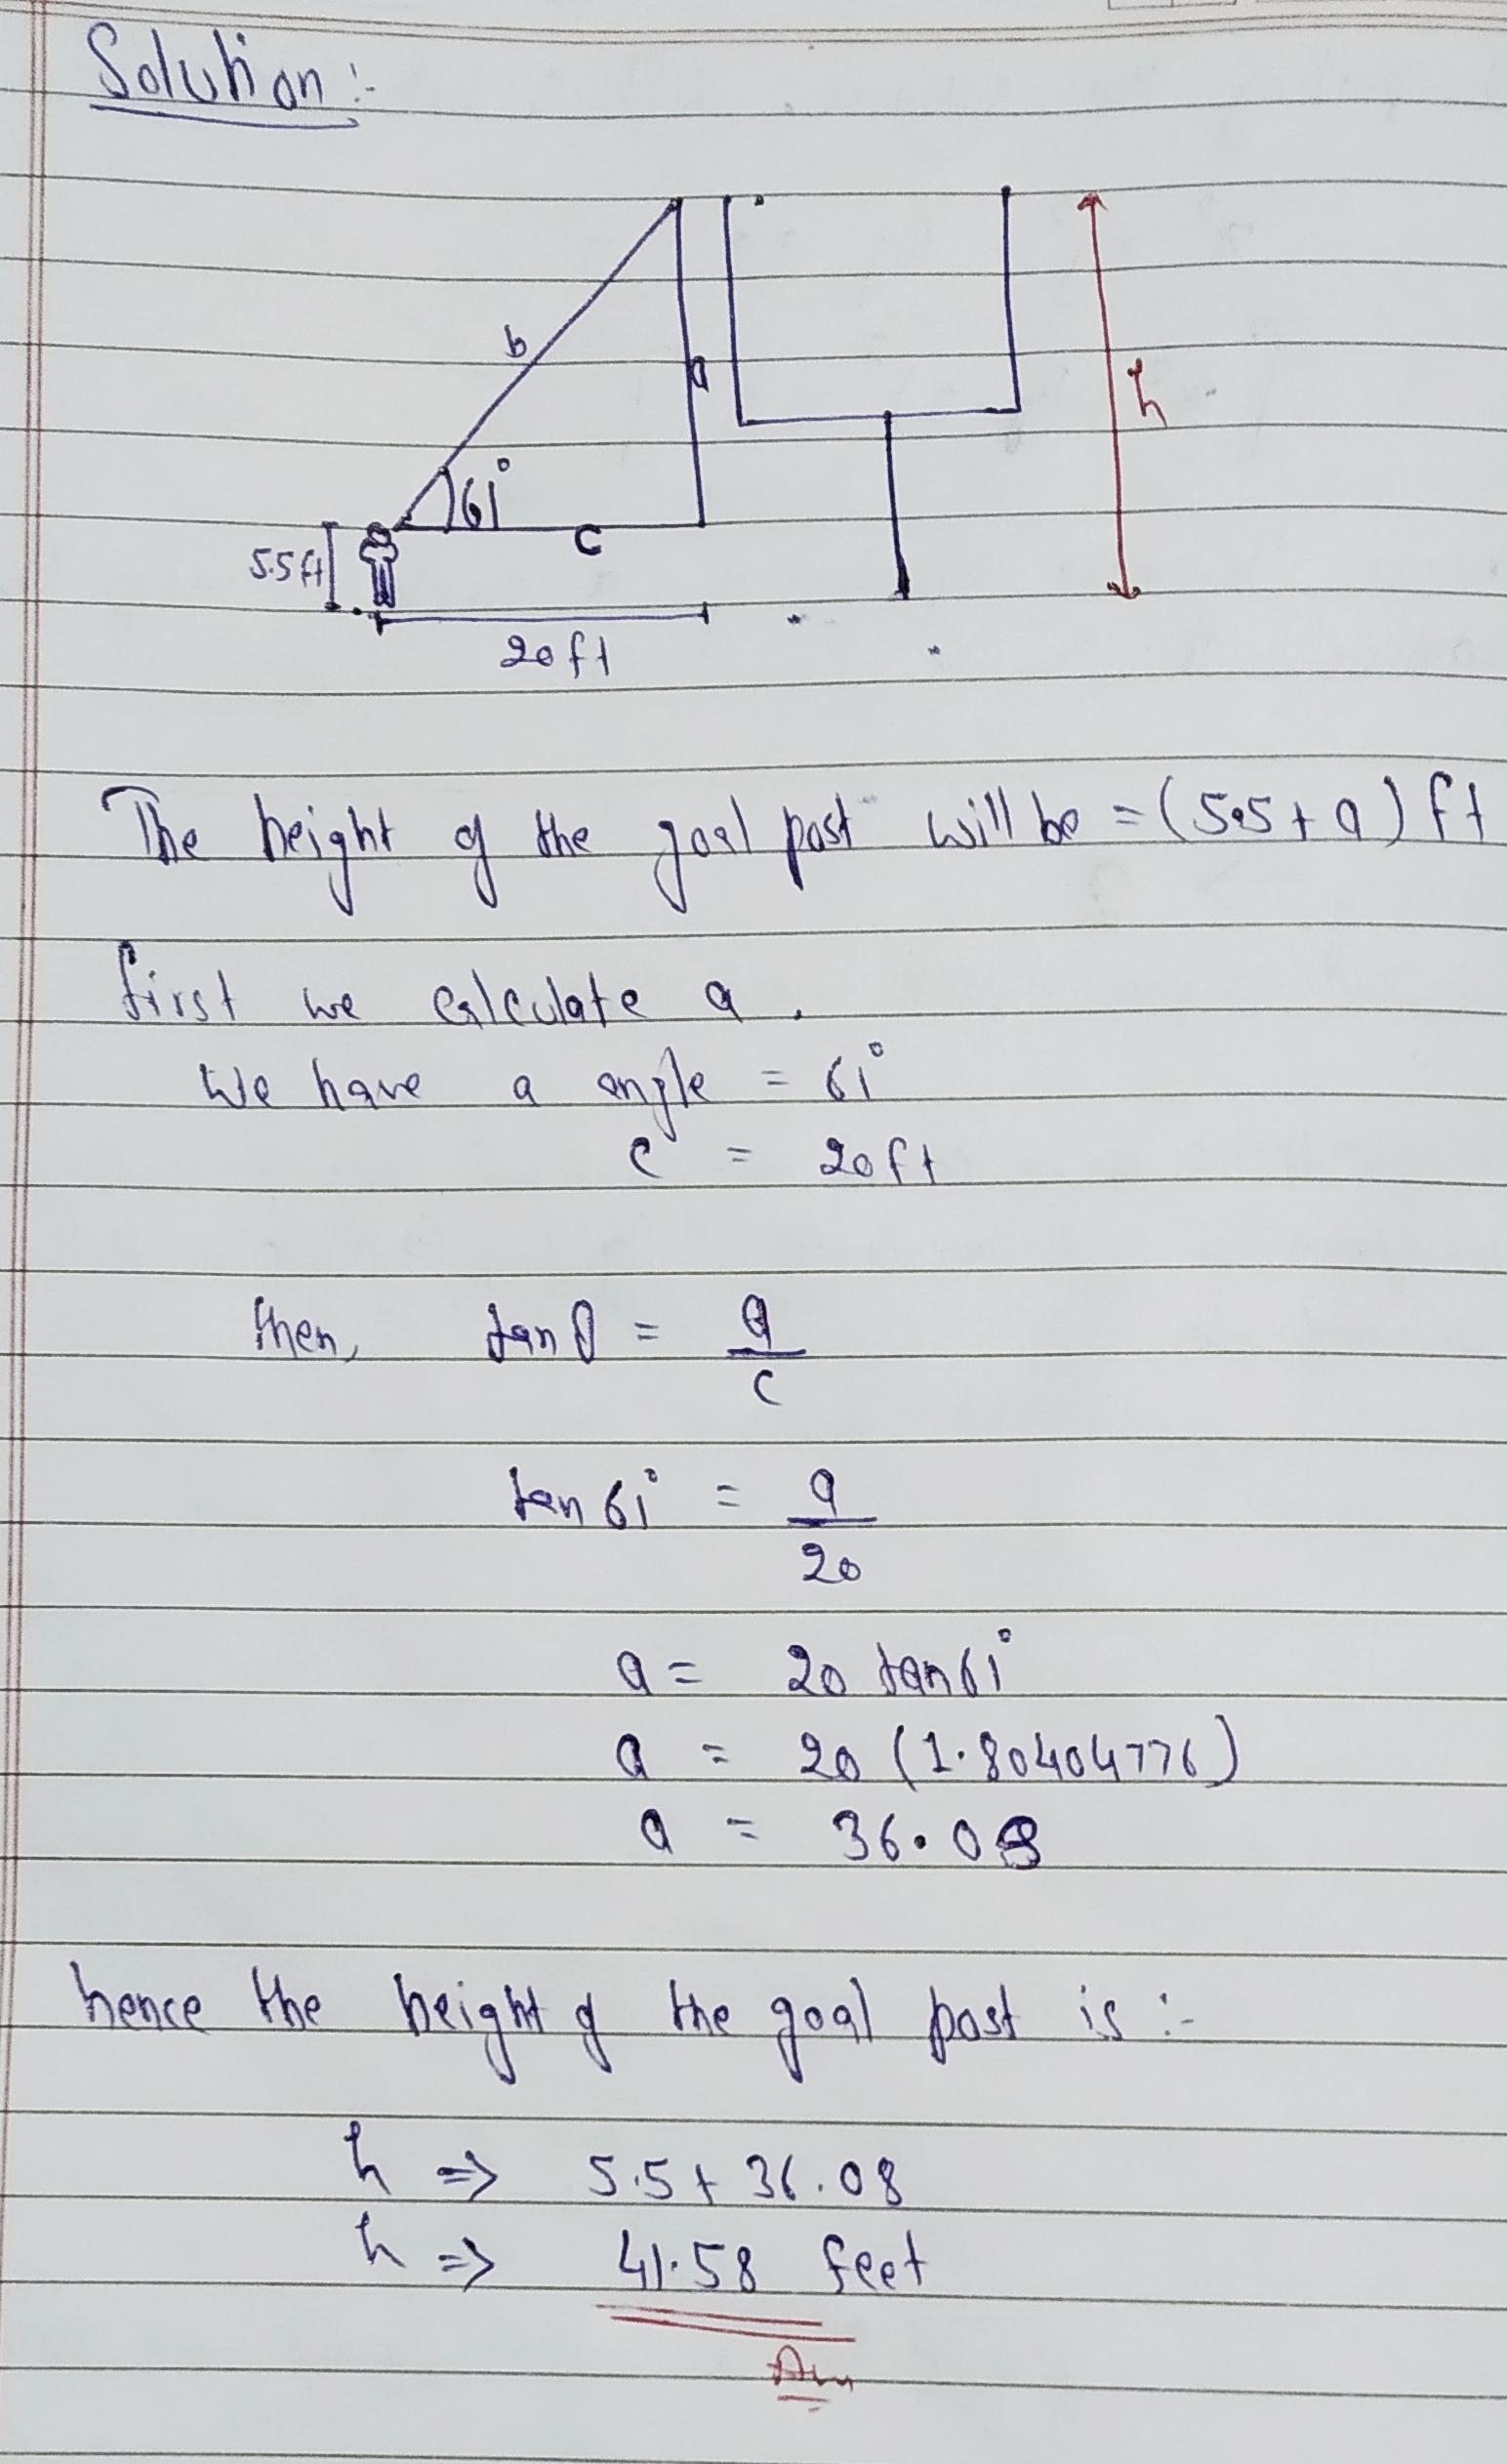 Solution :-
b
a
h
61°
c
5.5 ft
20 ft
The height of the goal post will be = (5.5 + a) ft
first we calculate a .
We have a angle = 61°
c = 20 ft
then, tan θ = a/c
tan 61° = a/20
a = 20 tan 61°
a = 20 (1.80404776)
a = 36.08
hence the height of the goal post is :-
h ⇒ 5.5 + 36.08
h ⇒ 41.58 feet
Ans